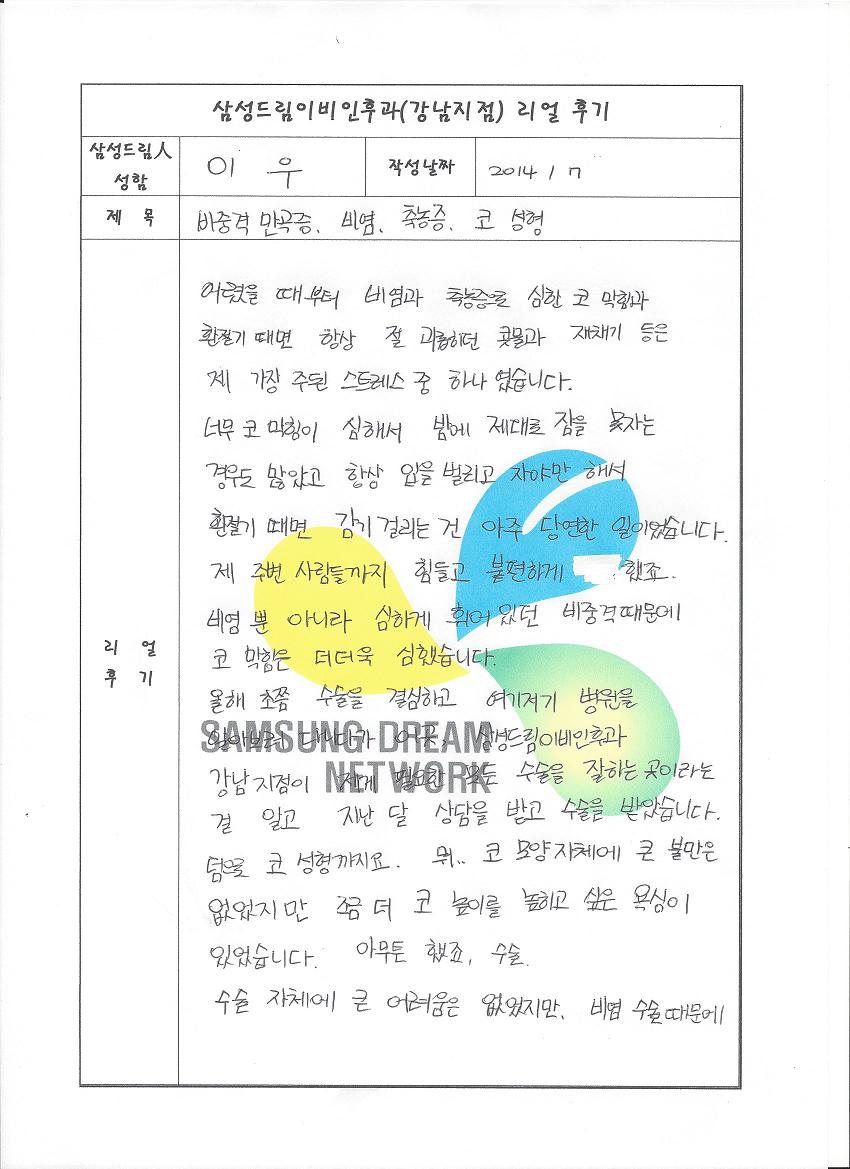 삼성드림이비인후과(강남지점) 리얼 후기
삼성드림人 성함
이 우
작성날짜
2014 / 7
제 목
비중격 만곡증, 비염, 축농증, 코 성형
리 얼
후 기
어렸을 때부터 비염과 축농증으로 심한 코 막힘과
환절기 때면 항상 절 괴롭히던 콧물과 재채기 등은
제 가장 주된 스트레스 중 하나 였습니다.
너무 코 막힘이 심해서 밤에 제대로 잠을 못자는
경우도 많았고 항상 입을 벌리고 자야만 해서
환절기 때면 감기 걸리는 건 아주 당연한 일이었습니다.
제 주변 사람들까지 힘들고 불편하게 했죠.
비염 뿐 아니라 심하게 휘어 있던 비중격때문에
코 막힘은 더더욱 심했습니다.
올해 초쯤 수술을 결심하고 여기저기 병원을
알아보러 다니다가 이곳, 삼성드림이비인후과
강남지점이 제게 필요한 모든 수술을 잘하는 곳이라는
걸 알고 지난 달 상담을 받고 수술을 받았습니다.
덤으로 코 성형까지요. 뭐.. 코 모양 자체에 큰 불만은
없었지만 조금 더 코 높이를 높히고 싶은 욕심이
있었습니다. 아무튼 했죠, 수술.
수술 자체에 큰 어려움은 없었지만, 비염 수술때문에
SAMSUNG DREAM
NETWORK